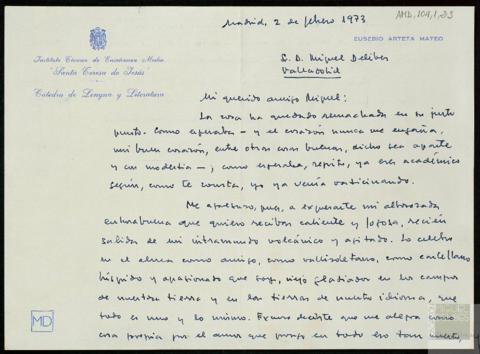 Madrid, 2 de febrero 1973
AMD, 109, 1, 23
EUSEBIO ARTETA MATEO
Instituto Técnico de Enseñanza Media
"Santa Teresa de Jesús"
Cátedra de Lengua y Literatura
S. D. Miguel Delibes
Valladolid
Mi querido amigo Miguel:
La cosa ha quedado remachada en su justo
punto. Como esperaba - y el corazón nunca me engaña,
mi buen corazón, entre otras cosas buenas, dicho sea aparte
y con modestia -; como esperaba, repito, ya eres académico
según, como te consta, yo ya venía vaticinando.
Me apresuro, pues, a expresarte mi alborozada
enhorabuena que quiero recibas caliente y fogosa, recién
salida de mi intramundo volcánico y agitado. Lo celebro
en el alma como amigo, como vallisoletano, como castellano
hispido y apasionado que soy, viejo gladiador en los campos
de nuestra tierra y en las tierras de nuestro idioma, que
todo es uno y lo mismo. Quiero decirte que me alegra como
cosa propia por el amor que pongo en todo eso tan nuestro,
MD